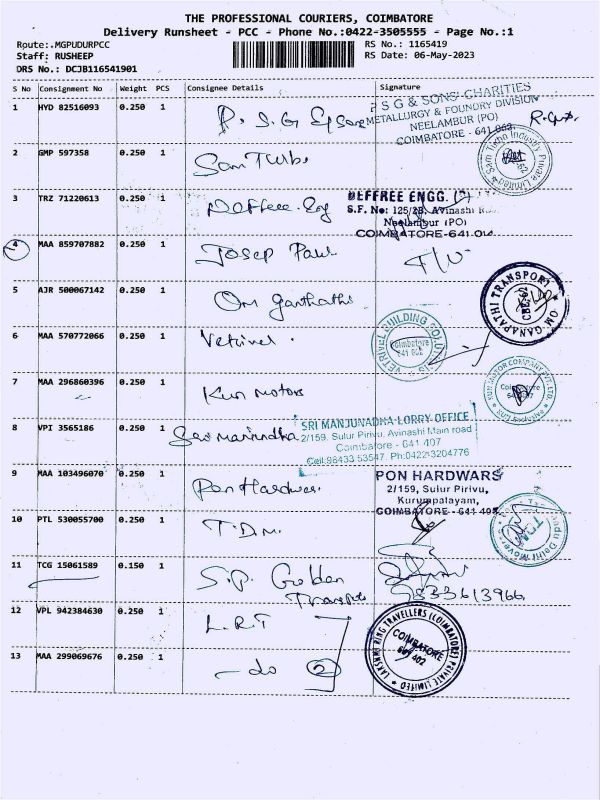 THE PROFESSIONAL COURIERS, COIMBATORE
Delivery Runsheet - PCC - Phone No.:0422-3505555 - Page No.:1
Route:.MGPUDURPCC RS No.: 1165419
Staff: RUSHEEP RS Date: 06-May-2023
DRS No.: DCJB116541901
S No Consignment No Weight PCS Consignee Details Signature
1 HYD 82516093 0.250 1 P. S. G
P S G & SONS' CHARITIES
METALLURGY & FOUNDRY DIVISION
NEELAMBUR (PO)
COIMBATORE - 641 062
2 GMP 597358 0.250 1 Sam Turbo
Sam Turbo Industry Private Limited
3 TRZ 71220613 0.250 1 Deffree. Eng
DEFFREE ENGG. (P)
S.F. No: 125/2B, Avinashi
Neelambur (PO)
COIMBATORE-641.0
4 MAA 859707882 0.250 1 Josep Paul
5 AJR 500067142 0.250 1 Om Ganthathi
OM GANAPATHI TRANSPORT
CBE
6 MAA 570772066 0.250 1 Vetrivel .
VETRIVEL BUILDING
Coimbatore
641 062
7 MAA 296860396 0.250 1 Kun motors
KUN MOTOR COMPANY PVT. LTD.
Coimbatore
8 VPI 3565186 0.250 1
SRI MANJUNADHA LORRY OFFICE
2/159, Sulur Pirivu, Avinashi Main road
Coimbatore - 641 407
Cell:98433 53547, Ph:04223204776
9 MAA 103496070 0.250 1 Pon Hardwar.
PON HARDWARS
2/159, Sulur Pirivu,
Kurumpalayam,
COIMBATORE - 641 407
10 PTL 530055700 0.250 1 T. D. M.
Delhi Movers
11 TCG 15061589 0.150 1 S. P. Golden
Transport
9833613966
12 VPL 942384630 0.250 1 L. R. T
LAKSHMI RING TRAVELLERS (COIMBATORE) PRIVATE LIMITED
COIMBATORE
641 402
13 MAA 299069676 0.250 1 - do 2